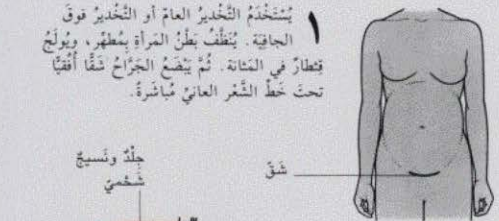 ١
يُسْتَخْدَمُ التَّخْديرُ العامّ أو التَّخْديرُ فوقَ
الجافِيَة. يُنَظَّفُ بَطْنُ المَرأةِ بِمُطهِّر، ويُولَجُ
قِثطارٌ في المَثانَة. ثُمَّ يَبْضَعُ الجَرَّاحُ شَقًّا أُفُقيًّا
تحتَ خَطِّ الشَّعْر العانيِّ مُباشَرةً.
شَقّ
جِلْدٌ ونَسيجٌ
شَحْميّ